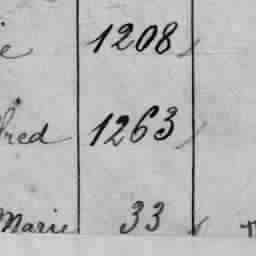 e 1208
fred 1263
Marie 33